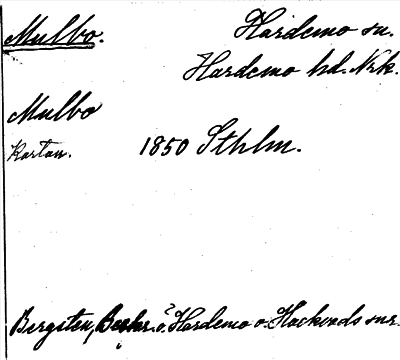 Mulbo. Hardemo sn.
Hardemo hd. Nrk.
Mulbo
Kartan. 1850 Sthlm.
Bergsten, Beskr. ö. Hardemo o. Hackvads snr.